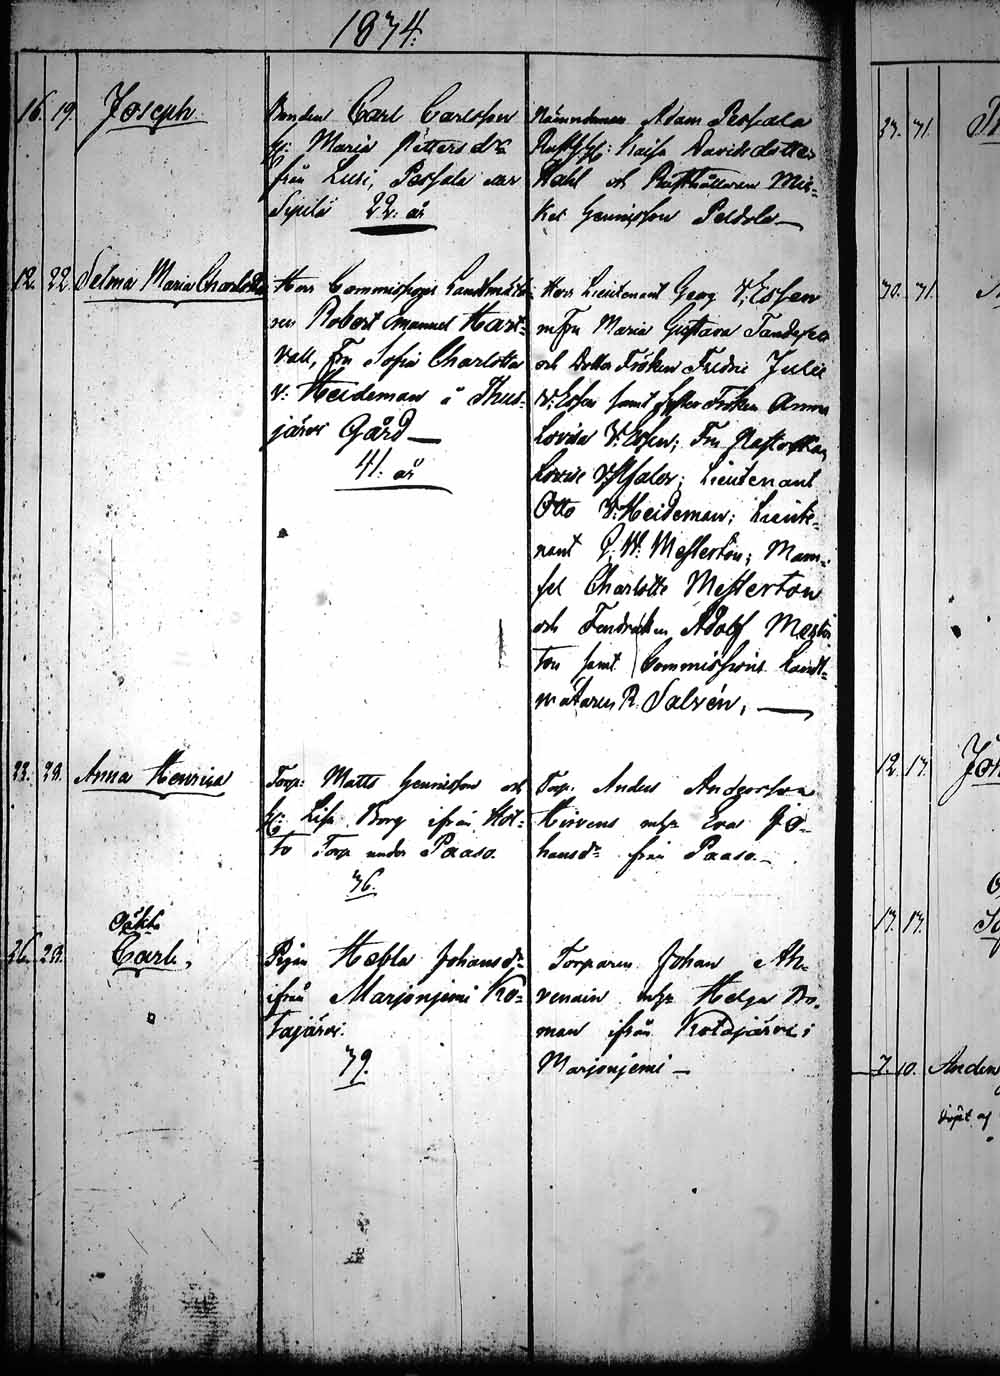 1874.
16. 19. Joseph
Bonden Carl Carlsson
H: Maria Pettersdr
från Lusi, Pessala eller
Seppilä 22. år
Nämndeman Adam Pessala
Rusth: Kaisa Davidsdotter
Ståhl och Rusthållaren Mic-
kel Hennigsson Peldola
12. 22. Selma Maria Charlotta
Herr Commissions Landtmäta-
ren Robert Emanuel Hart-
vall, Fru Sofia Charlotta
v: Heideman å Thus-
järvi Gård
41. år
Herr Lieutenant Georg V: Essen
m Fru Maria Gustava
och Dotter Fröken Fredric Julie
V: Essen samt Fröken Anna
Lovisa V: Essen; Fru
Lovise; Lieutenant
Otto V: Heideman; Lieute-
nant G. W. Mesterton; Mam-
sel Charlotte Mesterton
och Fendricken Adolf Mester-
ton samt Commissions Landt-
mätaren R. Salvén,
23. 28. Anna Henrica
Torp: Matts Hennigsson och
H: Lisa Borg ifrån Kot-
to Torp under Paaso.
36.
Torp. Anders Andersson
Hirvens mhu Eva Jo-
hansdr från Paaso.
Oäkta
26. 28. Carl,
Pigan Hebla Johansdr
ifrån Marjonjemi Ko-
tajärvi.
39.
Torparen Johan Ah-
venain mhu Helga Bo-
man ifrån Kotajärvi i
Marjonjemi
27. 31.
30. 31.
12. 17.
17. 17.
7. 10. Anders
döpt af